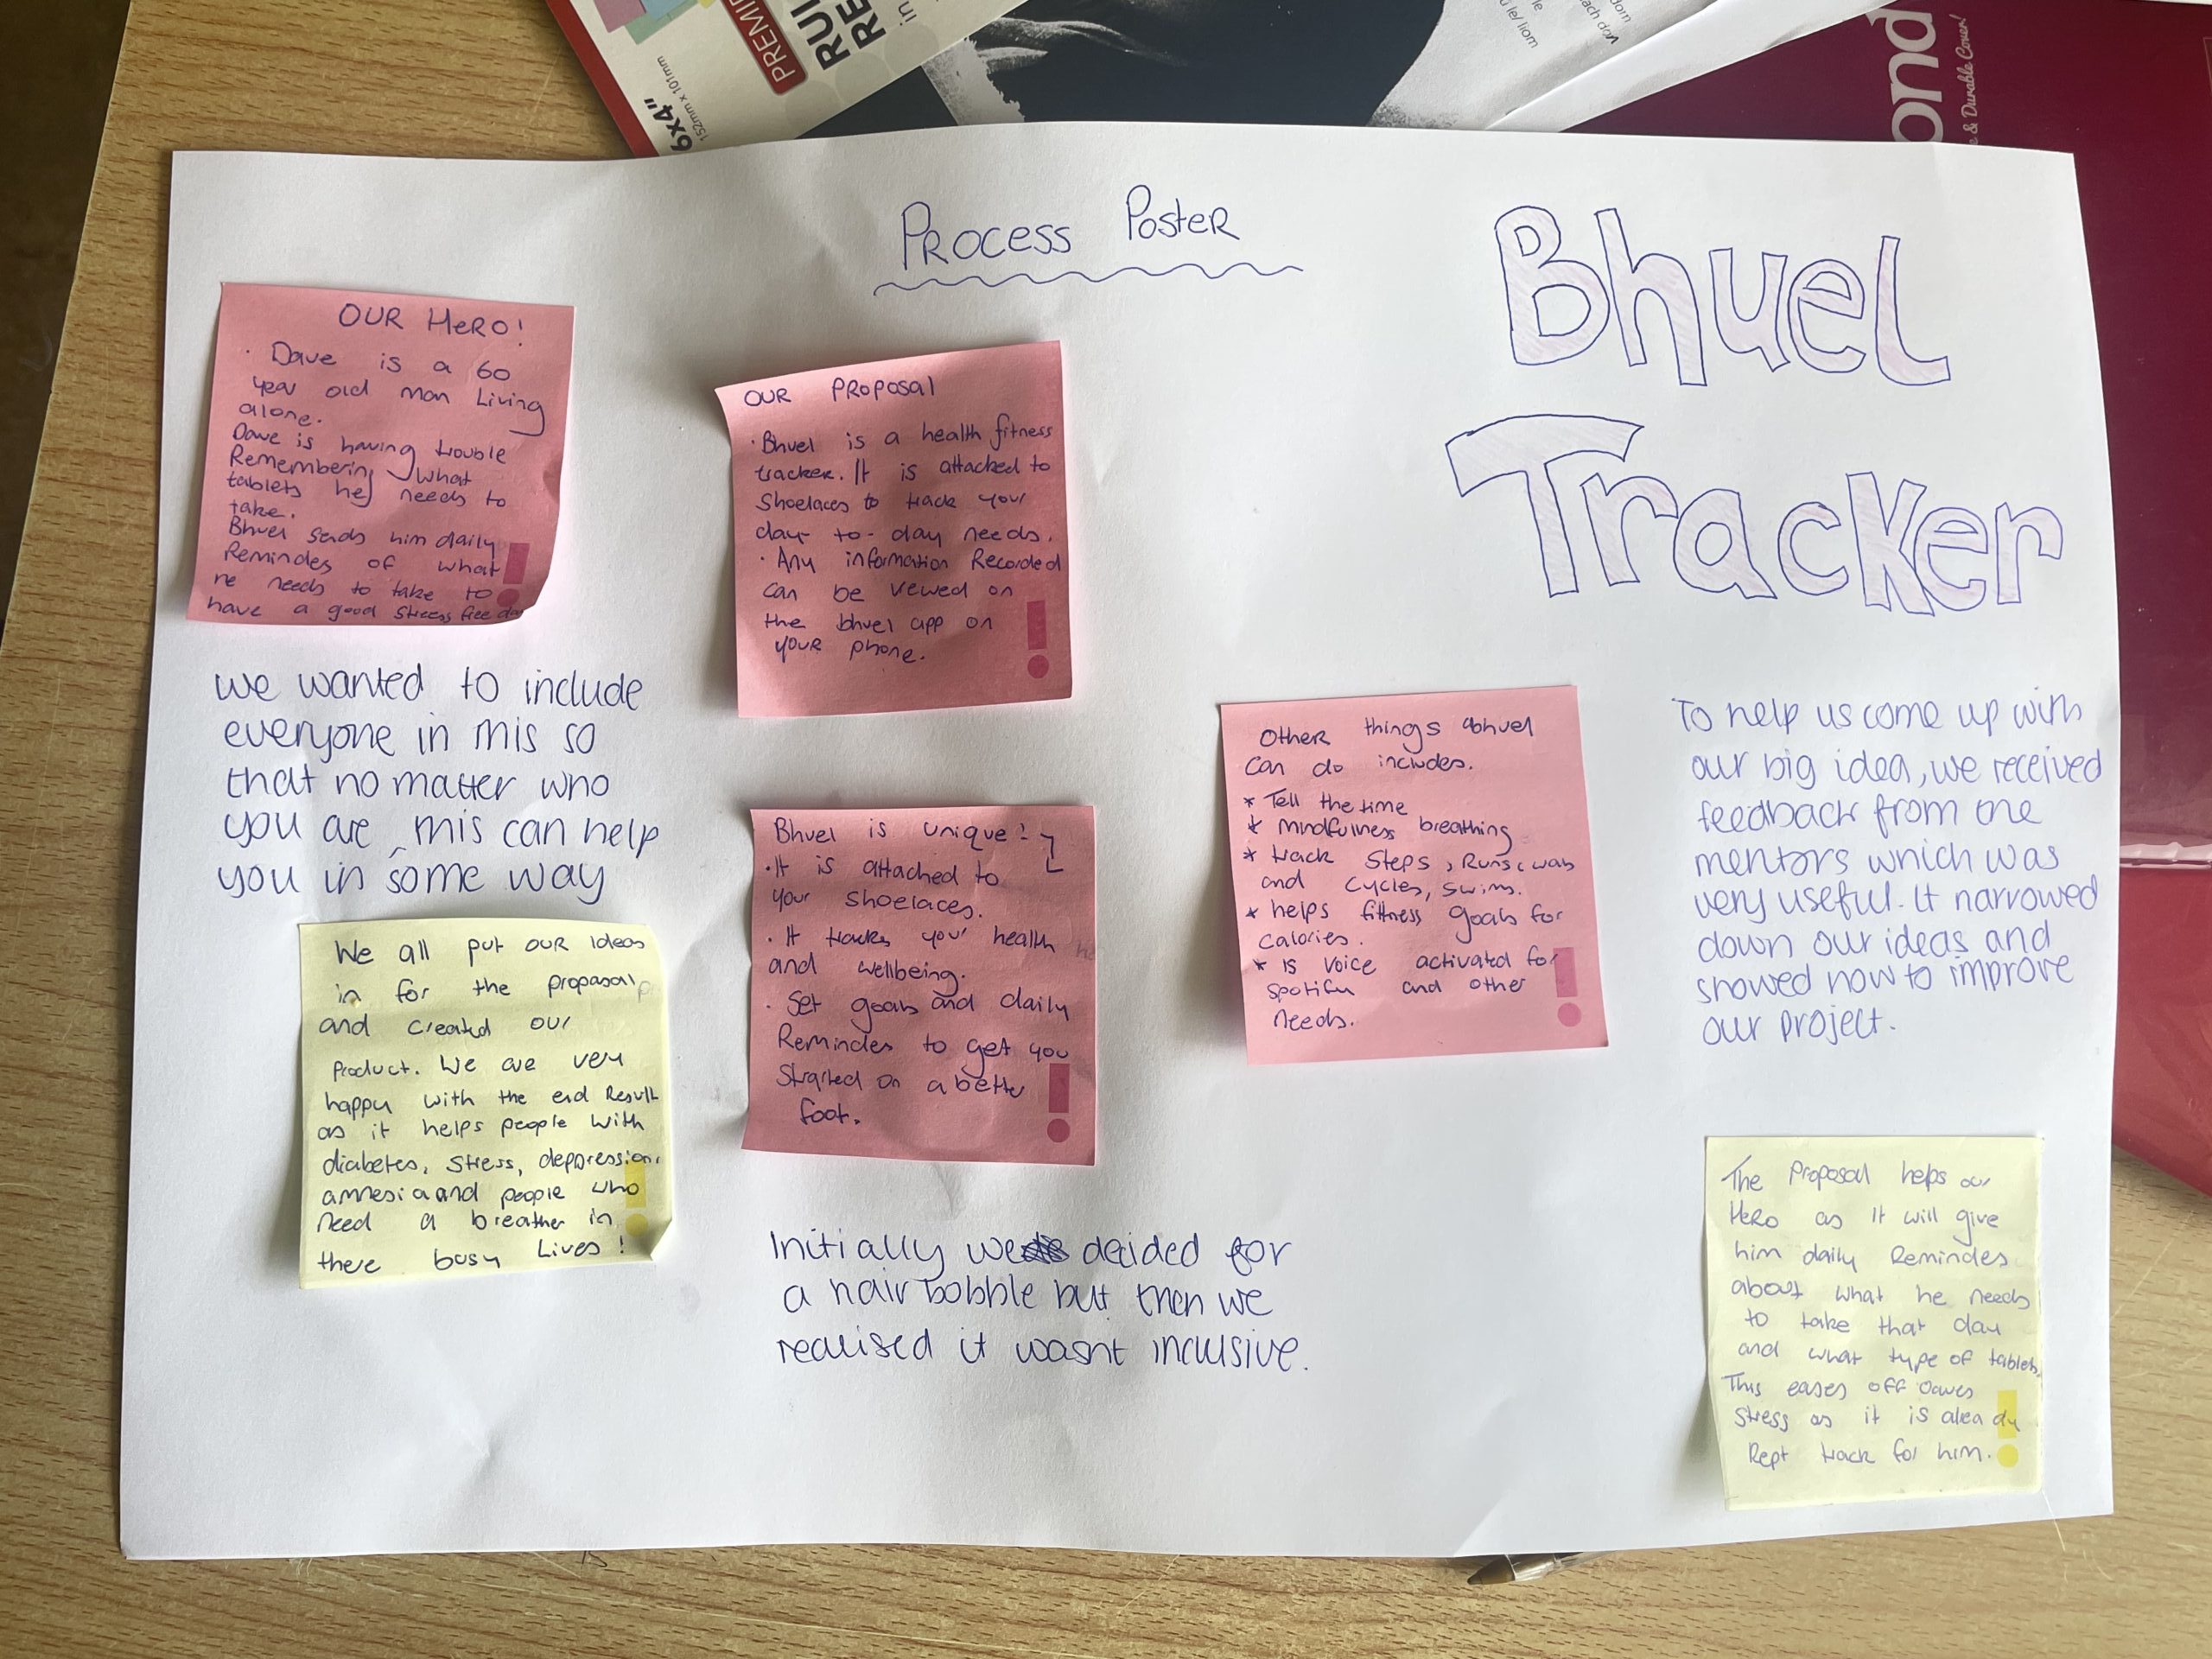 PREMI
RUI
RE
in
6x4"
152mm x 101mm
le
ú le/ liom
ach dan
dom
ond
& Durable Cover!
Process Poster
Bhuel
Tracker
OUR HeRO!
· Dave is a 60
year old man Living
alone.
Dave is having trouble
Remembering what
tablets he needs to
take.
Bhuel sends him daily
Remindes of what
he needs to take to
have a good stress free day
OUR PROPOSAl
· Bhuel is a health fitness
tracker. It is attached to
Shoelaces to track your
day-to-day needs.
· Any information Recorded
can be vewed on
the bhuel app on
your phone.
we wanted to include
everyone in this so
that no matter who
you are, this can help
you in some way
Bhuel is unique!
· It is attached to
your shoelaces.
· It tracks your health
and wellbeing.
· Set goals and daily
Remindes to get you
Strarted on a better
foot.
Other things bhuel
can do includes.
* Tell the time
* mindfulness breathing
* track Steps, Runs,
and Cycles, Swims.
* helps fittness goals for
calories.
* is voice activated for
Spotify and other
needs.
To help us come up with
our big idea, we received
feedback from the
mentors which was
very useful. It narrowed
down our ideas and
showed how to improve
our project.
We all put our ideas
in for the proposal
and created our
Product. We are very
happy with the end Result
as it helps people with
diabetes, stress, deppression,
amnesia and people who
need a breather in
there busy Lives!
Initially we decided for
a hair bobble but then we
realised it wasnt inclusive.
The Proposal helps our
Hero as it will give
him daily Remindes
about what he needs
to take that day
and what type of tablets.
This eases off Daves
Stress as it is aleady
Kept track for him.